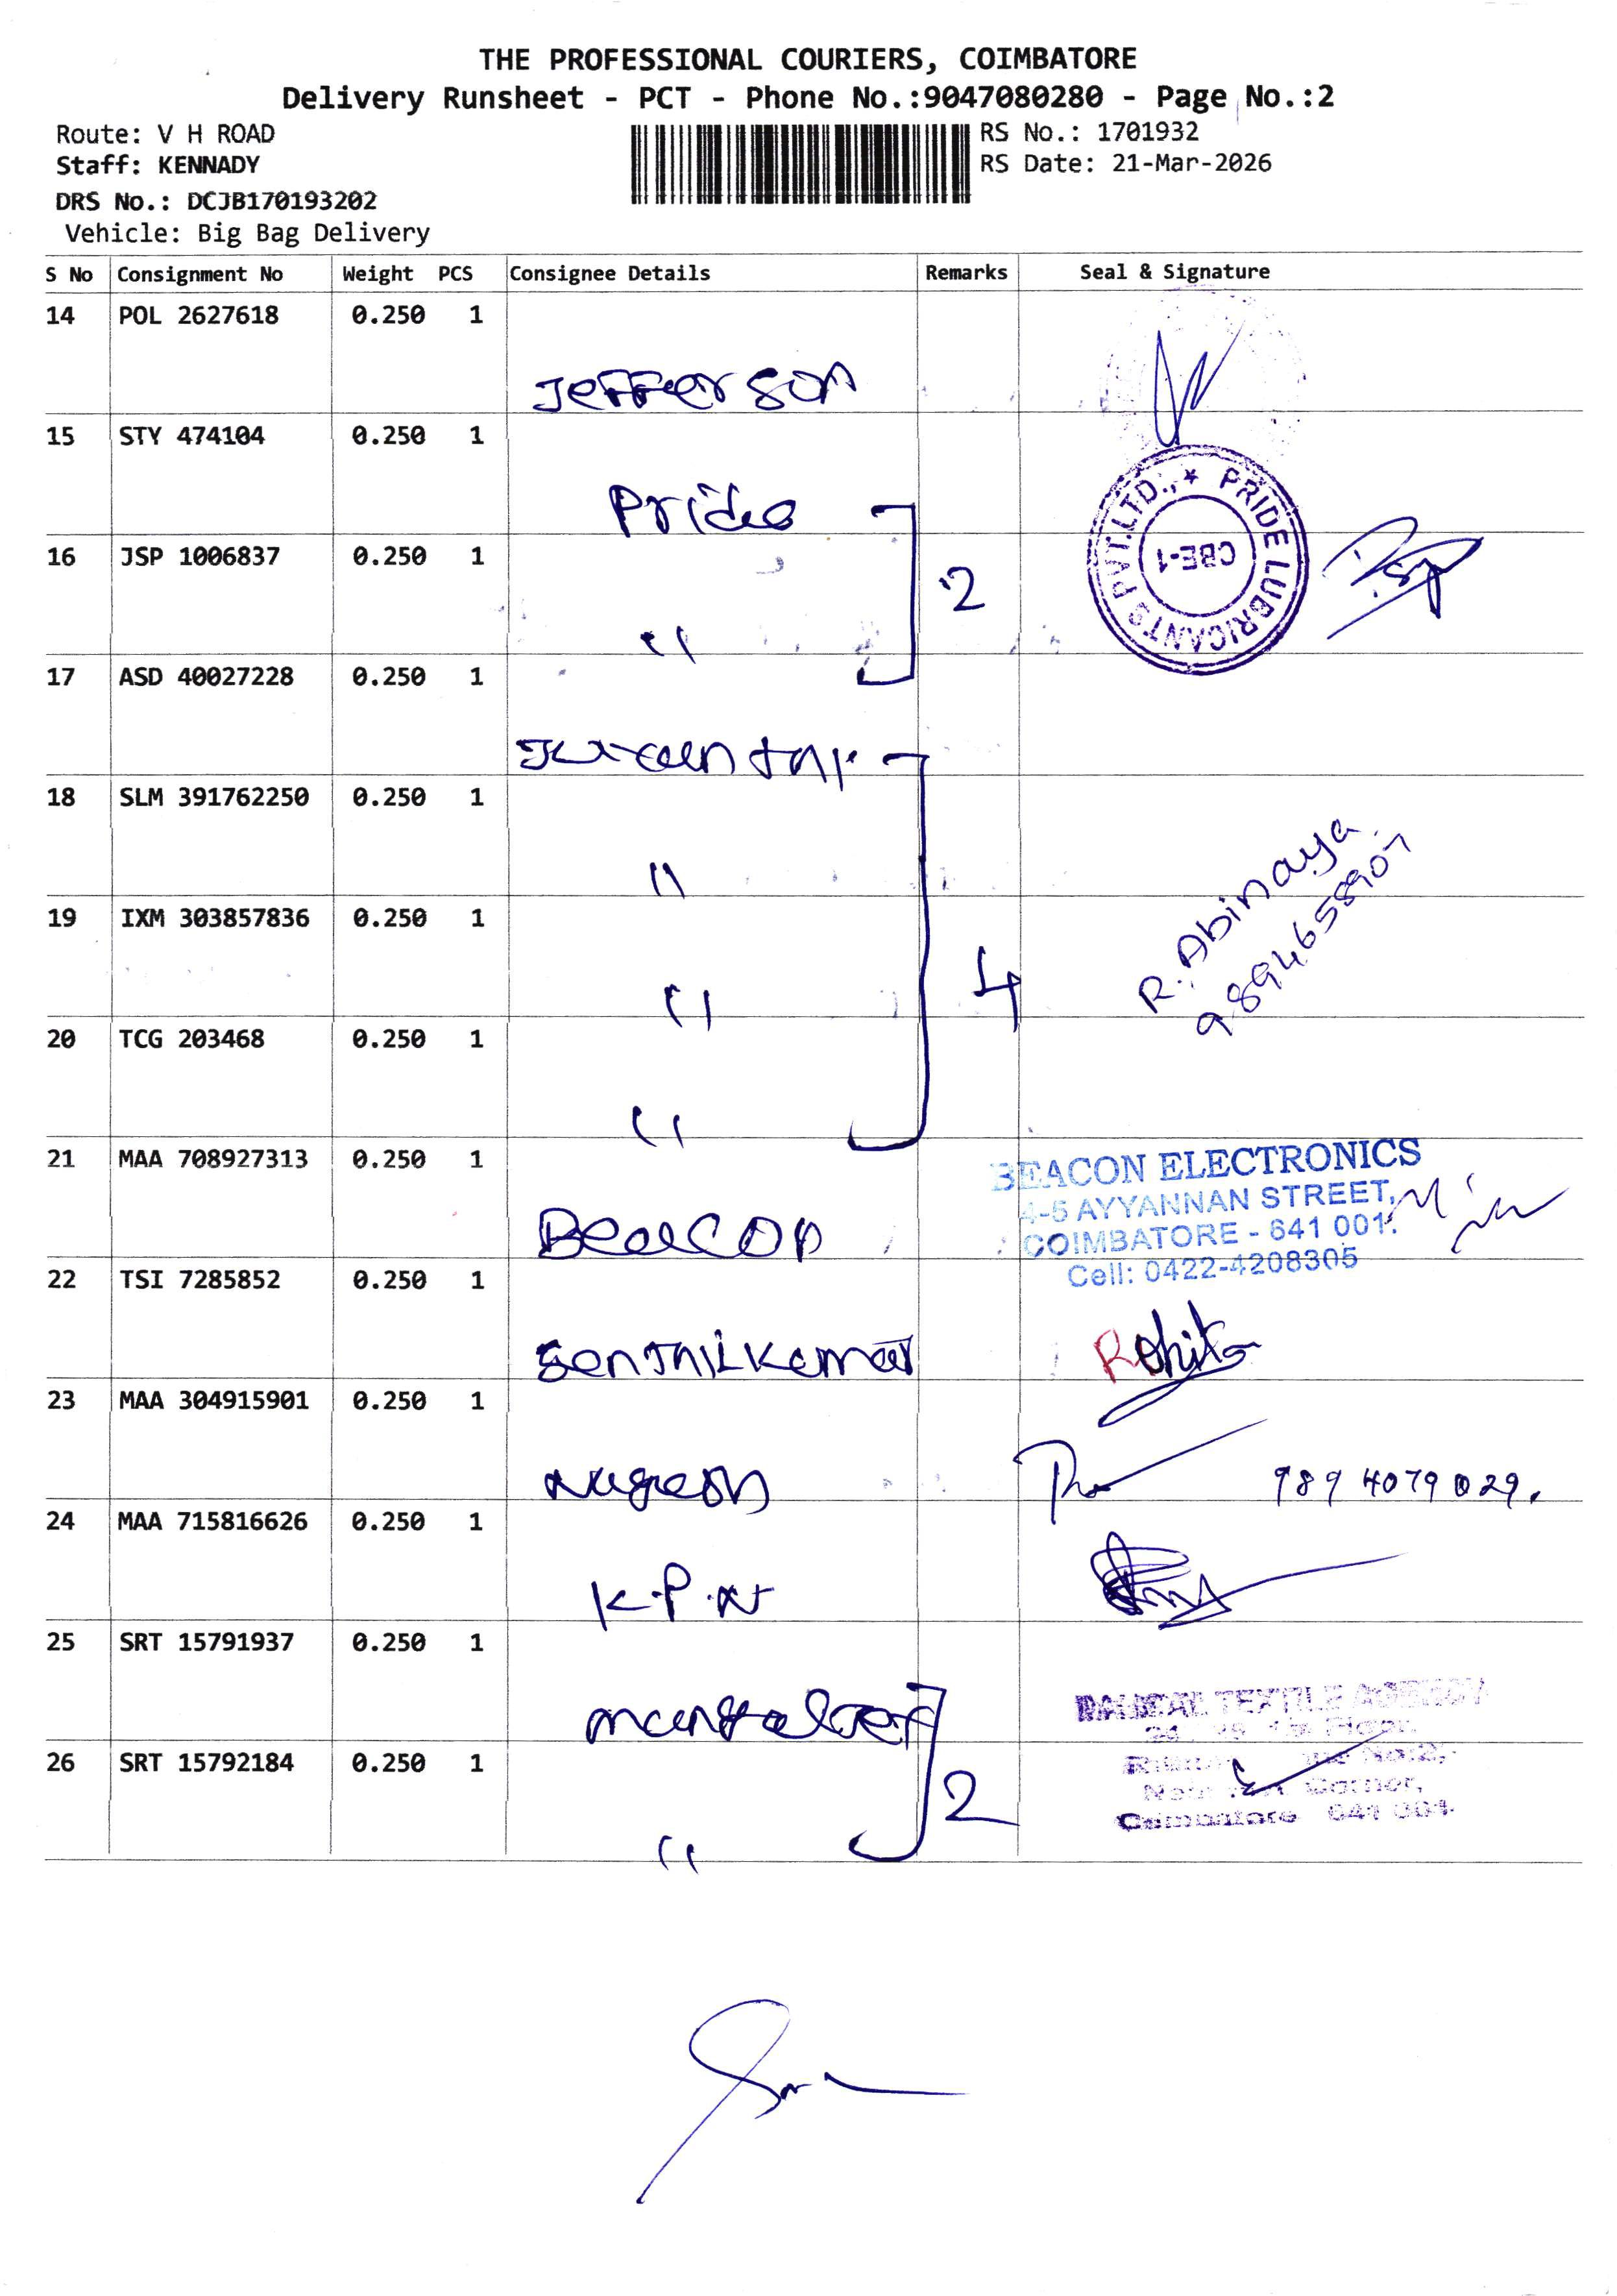 THE PROFESSIONAL COURIERS, COIMBATORE
Delivery Runsheet - PCT - Phone No.:9047080280 - Page No.:2
Route: V H ROAD
Staff: KENNADY
DRS No.: DCJB170193202
Vehicle: Big Bag Delivery
RS No.: 1701932
RS Date: 21-Mar-2026
S No Consignment No Weight PCS Consignee Details Remarks Seal & Signature
14 POL 2627618 0.250 1
Jefferson
15 STY 474104 0.250 1
Pride
PRIDE LUBRICANTS PVT.LTD., *
CBE-1
16 JSP 1006837 0.250 1
" 2
17 ASD 40027228 0.250 1
18 SLM 391762250 0.250 1
"
R. Abinaya
9894658907
19 IXM 303857836 0.250 1
" 4
20 TCG 203468 0.250 1
"
21 MAA 708927313 0.250 1
Beacon
BEACON ELECTRONICS
4-5 AYYANNAN STREET,
COIMBATORE - 641 001.
Cell: 0422-4208305
22 TSI 7285852 0.250 1
Senthilkumar
23 MAA 304915901 0.250 1
9894079029.
24 MAA 715816626 0.250 1
K.P.N
25 SRT 15791937 0.250 1
TEXTILE AGENCY
26 SRT 15792184 0.250 1
" 2
Corner,
Coimbatore 641 001